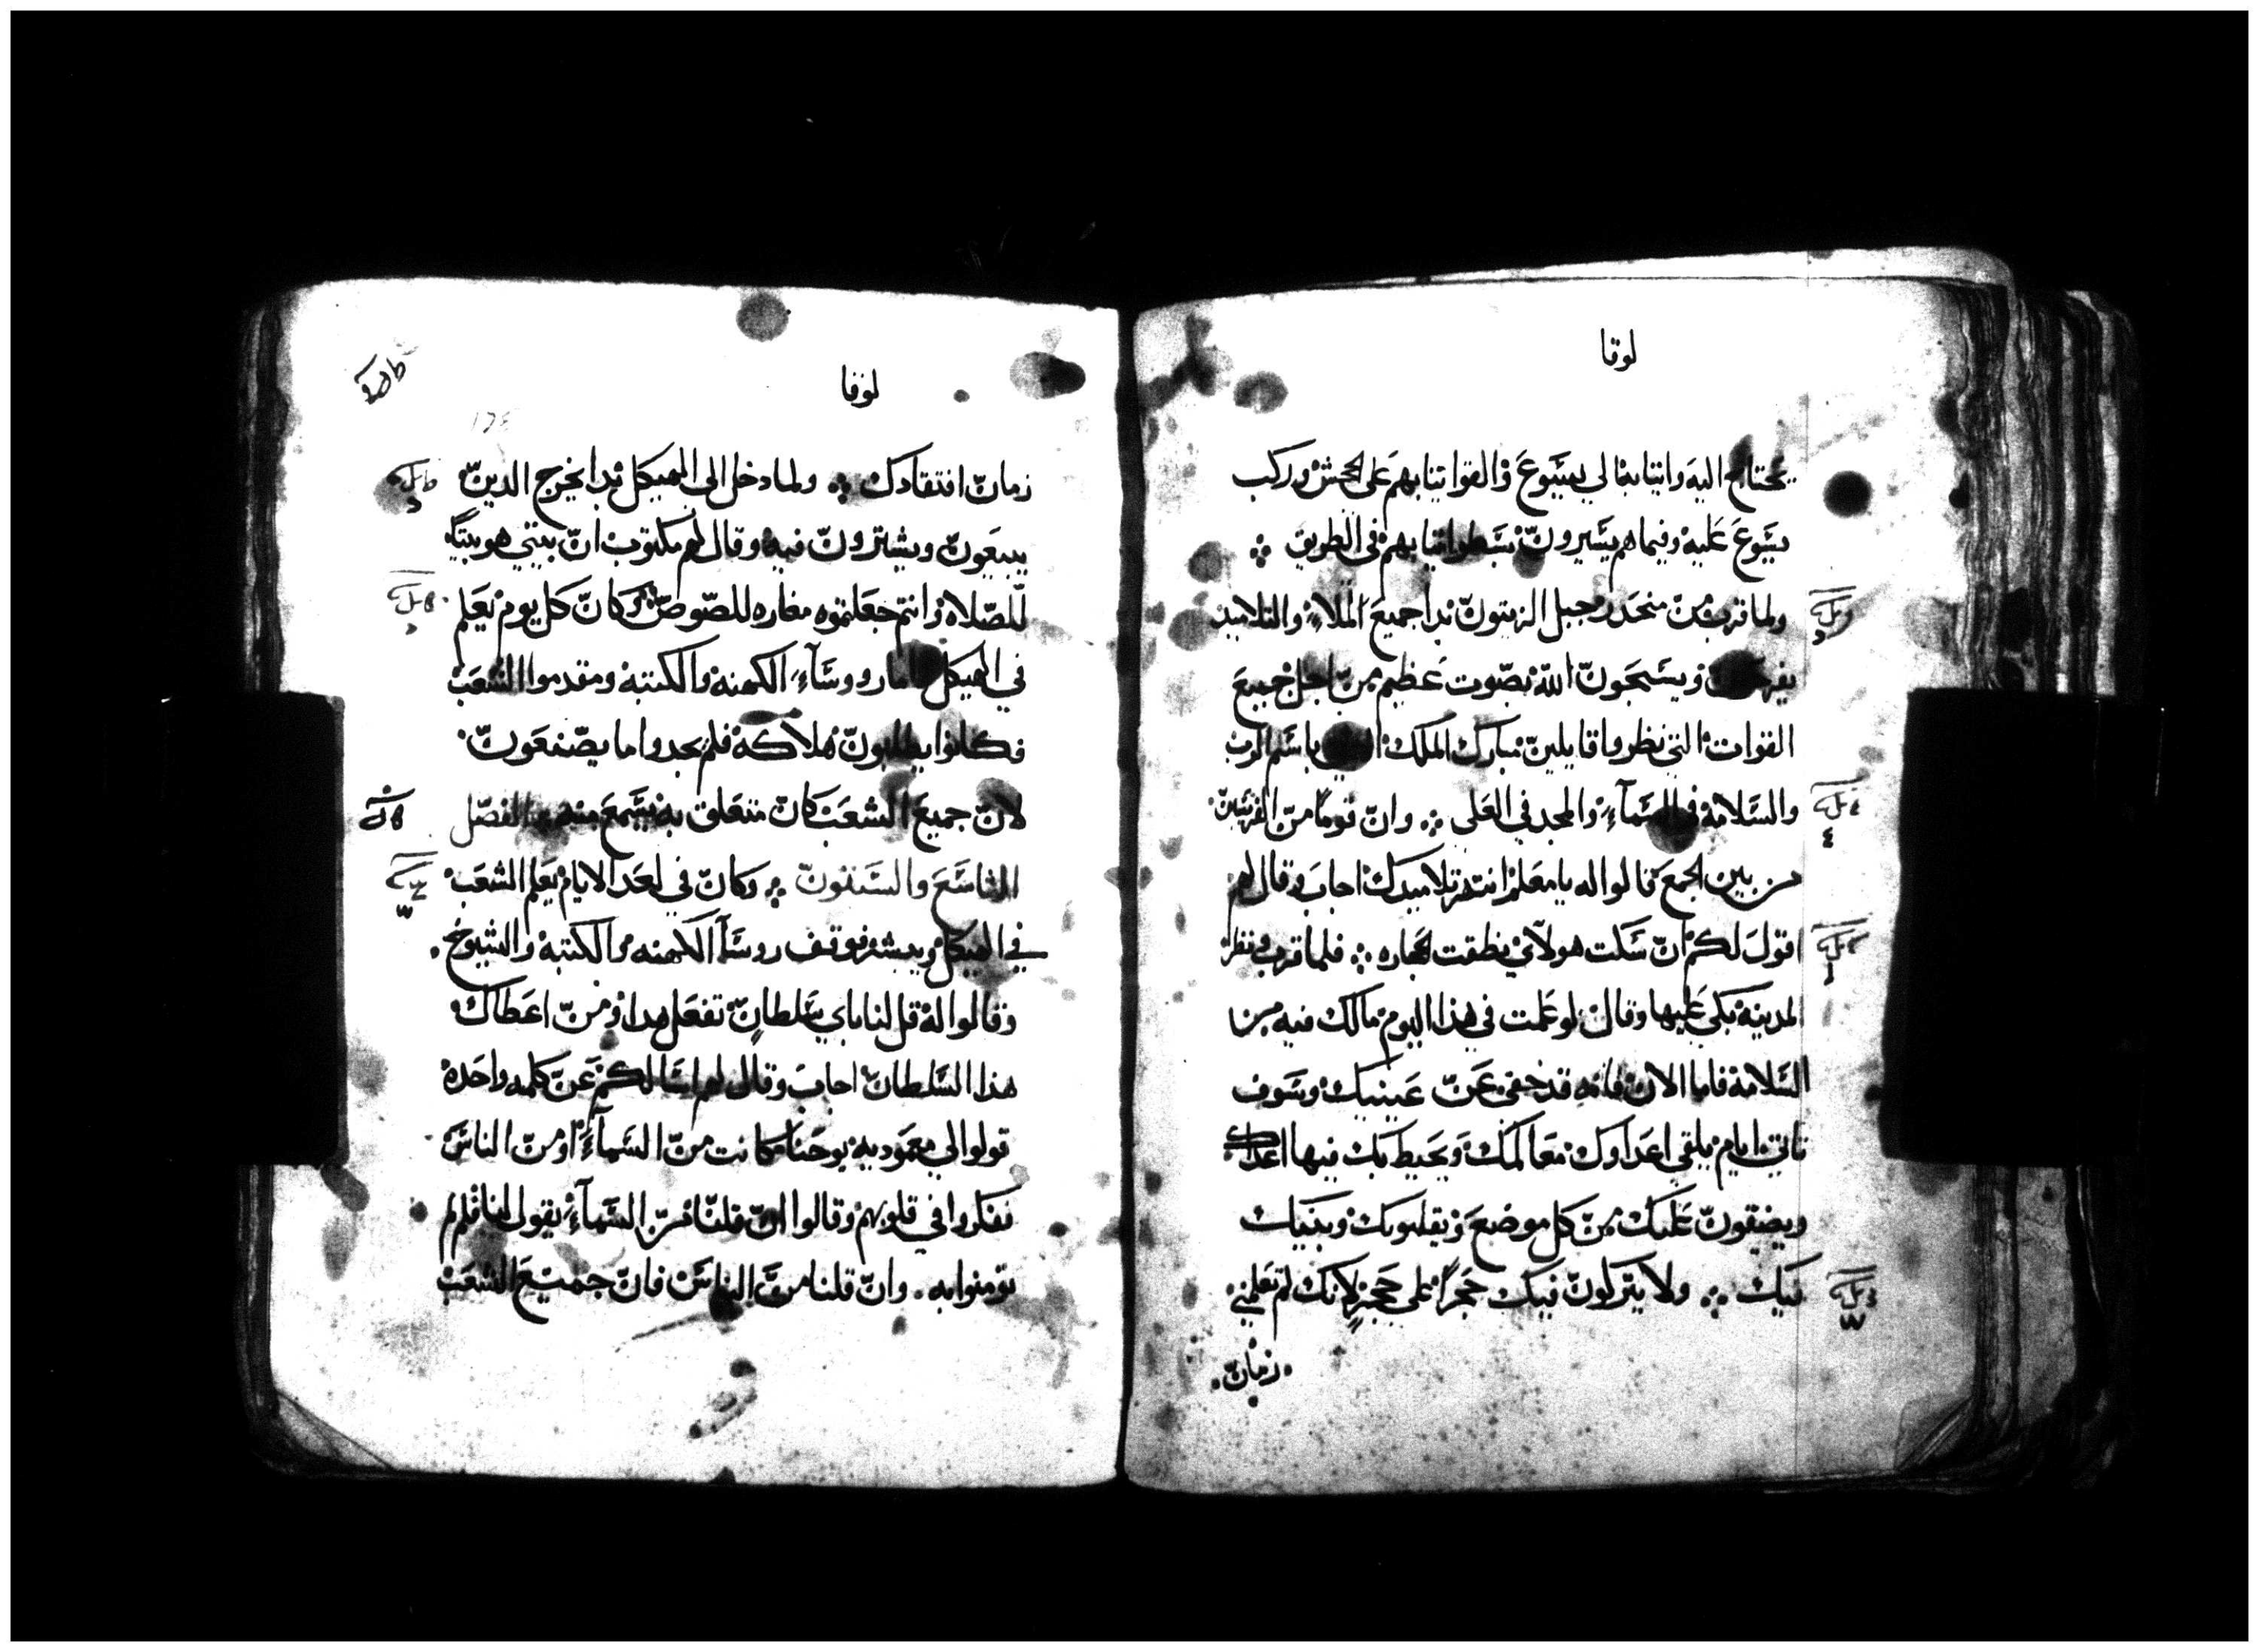 لوقا
يحتاج اليه واتيا بها الي يسوع والقوا تيابهم على الجحش وركب
يسوع عليه وفيما هم يسيرون بسطوا تيابهم في الطريق
ولما قرب من منحدر جبل الزيتون بدا جميع الملاء والتلاميد
ويسبحون الله بصوت عظيم من اجل جميع
القوات التي نظروا قايلين مبارك الملك باسم الرب
والسلامة في السماء والمجد في العلى وان قوما من الفريسين
من بين الجمع قالوا له يا معلم انتهر تلاميدك اجاب وقال لهم
اقول لكم ان سكت هولاي نطقت الحجاره فلما قرب ونظر
المدينه بكي عليها وقال لو علمت في هذا اليوم مالك فيه من
السلامة فاما الان فانه قد خفي عن عينيك وسوف
تاتي ايام يلقي اعداوك معالمك ويحيط بك فيها اعداك
ويضيقون عليك من كل موضع ويقلبوبك وبنيك
فيك ولا يتركون فيك حجرا على حجر لانك لم تعلمي
زمان
لوقا
زمان افتقادك ولما دخل الى الهيكل بدا يخرج الدين
يبيعون ويشترون فيه وقال لهم مكتوب ان بيتي هو بيتا
للصلاه وانتم جعلتموه مغاره للصوص وكان كل يوم يعلم
في الهيكل فاما رووساء الكهنه والكتبة ومقدموا الشعب
فكانوا يطلبون هلاكه فلم يجدوا ما يصنعون
لان جميع الشعب كان متعلق به يسمع منه الفصل
التاسع والستون وكان في احد الايام يعلم الشعب
في الهيكل ويبشر فوقف روسا الكهنه والكتبة والشيوخ
وقالوا له قل لنا باي سلطان تفعل هدا ومن اعطاك
هذا السلطان اجاب وقال لهم اسالكم عن كلمه واحده
قولوا لي معموديه يوحنا كانت من السماء او من الناس
ففكروا في قلوبهم وقالوا ان قلنا من السماء يقول لنا فلم لم
تومنوا به وان قلنا من الناس فان جميع الشعب